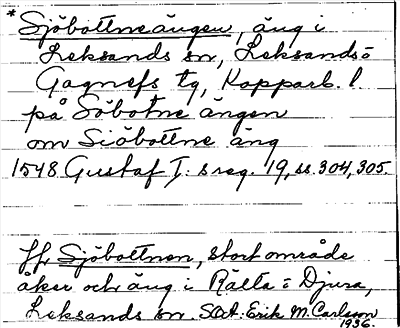 * Sjöbottneängen, äng i
Leksands sn, Leksands o
Gagnefs tg, Kopparb. l.
på Söbotne ängen
om Siöbottne äng
1548 Gustaf I:s reg. 19, ss. 304, 305.
Jfr Sjöbottnen, stort område
åker och äng i Rälta i Djura,
Leksands sn. Erik M. Carlsson
1936.